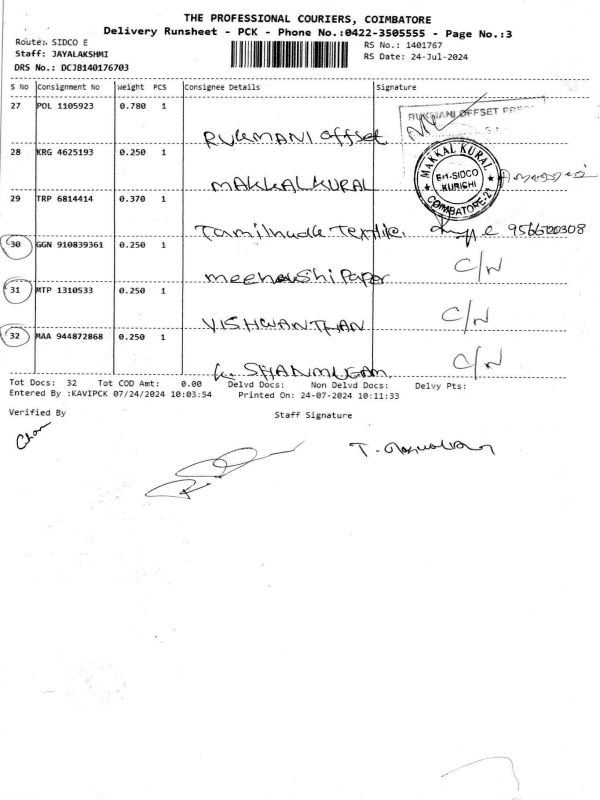 THE PROFESSIONAL COURIERS, COIMBATORE
Delivery Runsheet - PCK - Phone No.:0422-3505555 - Page No.:3
Route: SIDCO E
RS No.: 1401767
Staff: JAYALAKSHMI
RS Date: 24-Jul-2024
DRS No.: DCJB140176703
S No Consignment No Weight PCS Consignee Details Signature
27 POL 1105923 0.780 1
RUKMANI OFFSET PRESS
Rukmani offset
28 KRG 4625193 0.250 1
MAKKAL KURAL
B-1-SIDCO
KURICHI
COIMBATORE-21
MAKKALKURAL
29 TRP 6814414 0.370 1
Tamilnadu Textile. 9566520308
30 GGN 910839361 0.250 1
meenakshi Paper C/N
31 MTP 1310533 0.250 1
VISHWANTHAN C/N
32 MAA 944872868 0.250 1
K. SHANMUGAM. C/N
Tot Docs: 32 Tot COD Amt: 0.00 Delvd Docs: Non Delvd Docs: Delvy Pts:
Entered By :KAVIPCK 07/24/2024 10:03:54 Printed On: 24-07-2024 10:11:33
Verified By Staff Signature